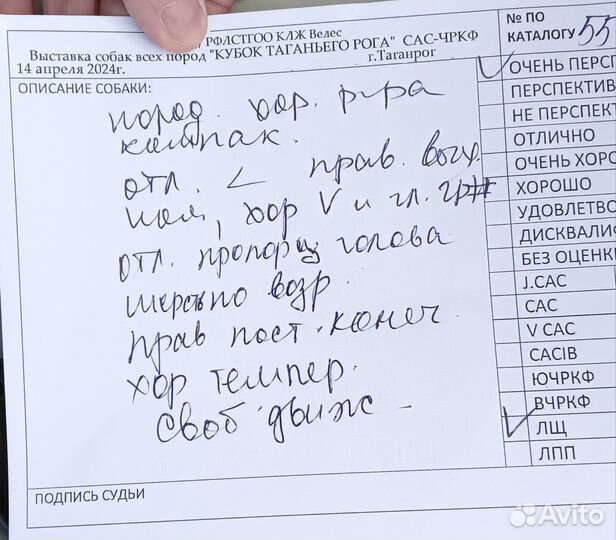 РФЛСТГОО КЛЖ Велес
Выставка собак всех пород "КУБОК ТАГАНЬЕГО РОГА" САС-ЧРКФ
14 апреля 2024г.
г.Таганрог
№ ПО
КАТАЛОГУ 55
ОПИСАНИЕ СОБАКИ:
пород. хор. р-ра
компак.
отл. < прав. выр.
хор V и гл. гр
отл. пропорц голова
шерсть по возр.
прав пост. конеч.
хор темпер.
своб. движ -
ОЧЕНЬ ПЕРСП
ПЕРСПЕКТИВ
НЕ ПЕРСПЕКТ
ОТЛИЧНО
ОЧЕНЬ ХОРО
ХОРОШО
УДОВЛЕТВО
ДИСКВАЛИФ
БЕЗ ОЦЕНКИ
J.CAC
CAC
V CAC
CACIB
ЮЧРКФ
ВЧРКФ
ЛЩ
ЛПП
ПОДПИСЬ СУДЬИ
Avito